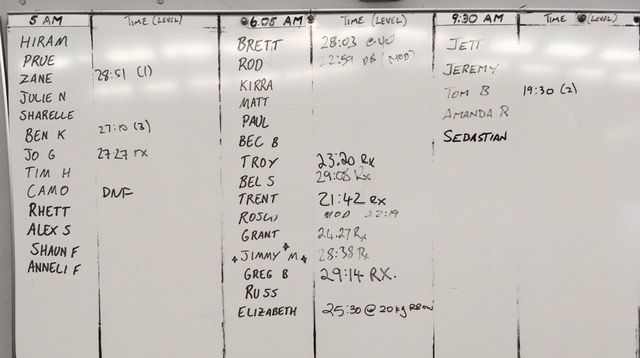 5 AM TIME (LEVEL)
HIRAM
PRUE
ZANE 28:51 (1)
JULIE N
SHARELLE
BEN K 27:10 (3)
JO G 27:27 rx
TIM H
CAMO DNF
RHETT
ALEX S
SHAUN F
ANNELI F
6.05 AM TIME (LEVEL)
BRETT 28:03 @ 40
ROD 22:59 DB (MOD)
KIRRA
MATT
PAUL
BEC B
TROY 23:20 Rx
BEL S 29:08 Rx
TRENT 21:42 Rx
MOD 22:19
GRANT 24.27 Rx
JIMMY M 28:38 Rx
GREG B 29:14 RX.
RUSS
ELIZABETH 25:30 @ 20kg
9:30 AM TIME (LEVEL)
JETT
JEREMY
TOM B 19:30 (2)
AMANDA R
SEBASTIAN